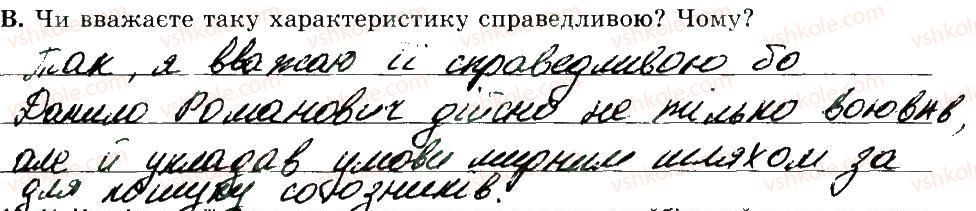 В. Чи вважаєте таку характеристику справедливою? Чому?
Так, я вважаю її справедливою бо
Данило Романович дійсно не тілько воював,
але й укладав умови мирним шляхом за
для пошуку союзників.